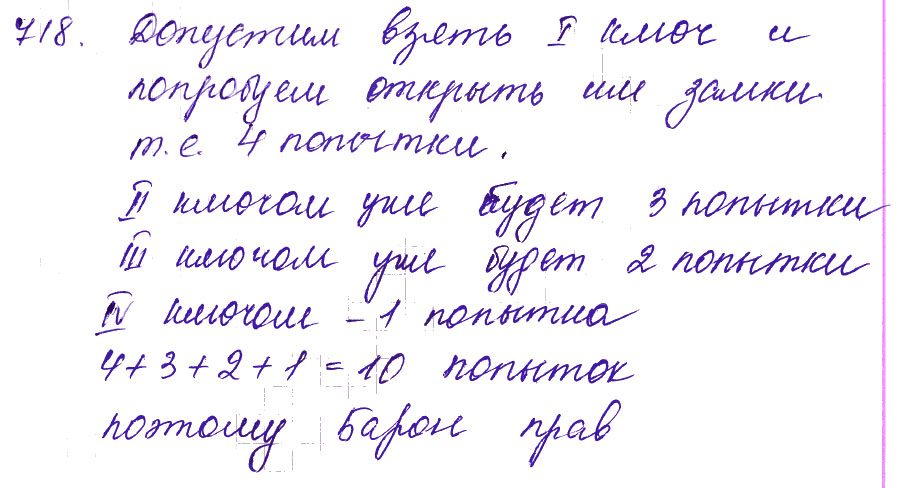 718. Допустим взять I ключ и
попробуем открыть им замки.
т.е. 4 попытки.
II ключом уже будет 3 попытки
III ключом уже будет 2 попытки
IV ключом - 1 попытка
4+3+2+1=10 попыток
поэтому Барон прав